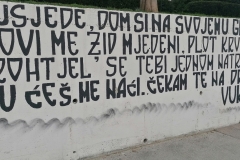 USJEDE, DOM SI NA SVOJEMU G
OVI ME ŽID MJEDENI, PLOT KRV
OHTJEL' SE TEBI JEDNOM NATR
U ĆEŠ ME NAĆI. ČEKAM TE NA D
VUK